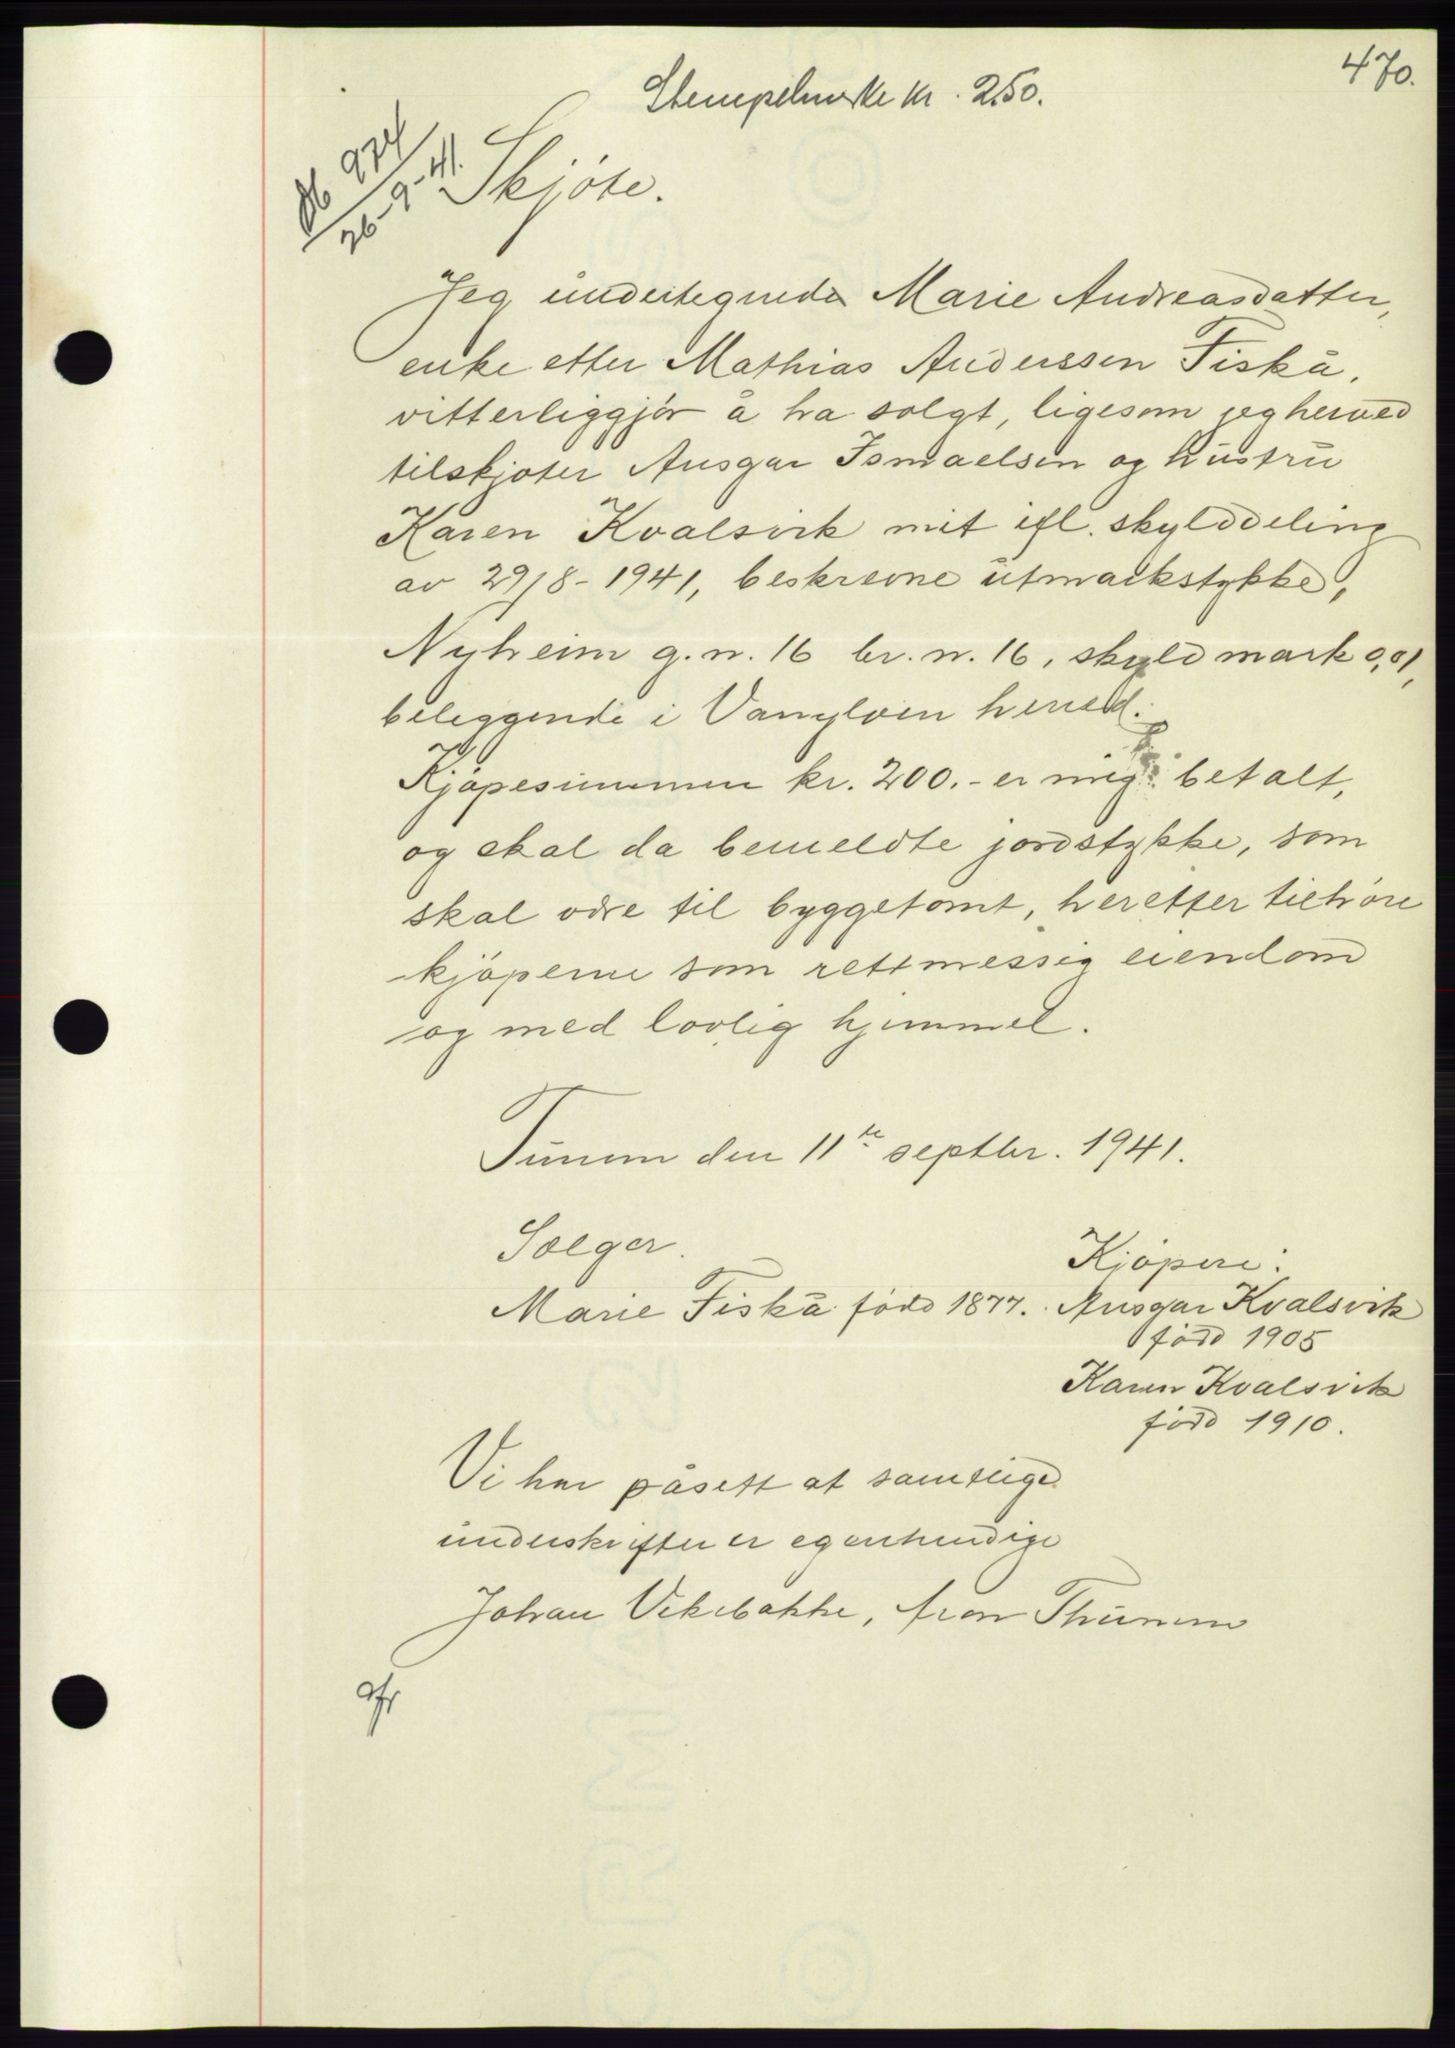 470.
Stempelmerke kr. 2.50.
Db 974
26-9-41.
Skjöte.
Jeg undertegnede Marie Andreasdatter,
enke etter Mathias Anderssen Fiskå,
vitterliggjör å ha solgt, ligesom jeg herved
tilskjöter Ansgar Ismaelsen og hustru
Karen Kvalsvik mit ifl. skylddeling
av 29/8-1941, beskrevne utmarkstykke,
Nyheim g.n. 16 br.n. 16, skyld mark 0,01,
beliggende i Vanylven herred.
Kjöpesummen kr. 200.- er mig betalt,
og skal da bemeldte jordstykke, som
skal være til byggetomt, heretter tilhöre
kjöperne som rettmessig eiendom
og med lovlig hjemmel.
Tunem den 11te septbr. 1941.
Sælger.
Kjöpere:
Marie Fiskå född 1877. Ansgar Kvalsvik
född 1905
Karen Kvalsvik
född 1910.
Vi har påsett at samtlige
underskrifter er egenhendige
Johan Vikebakke, Aron Thunem
afr